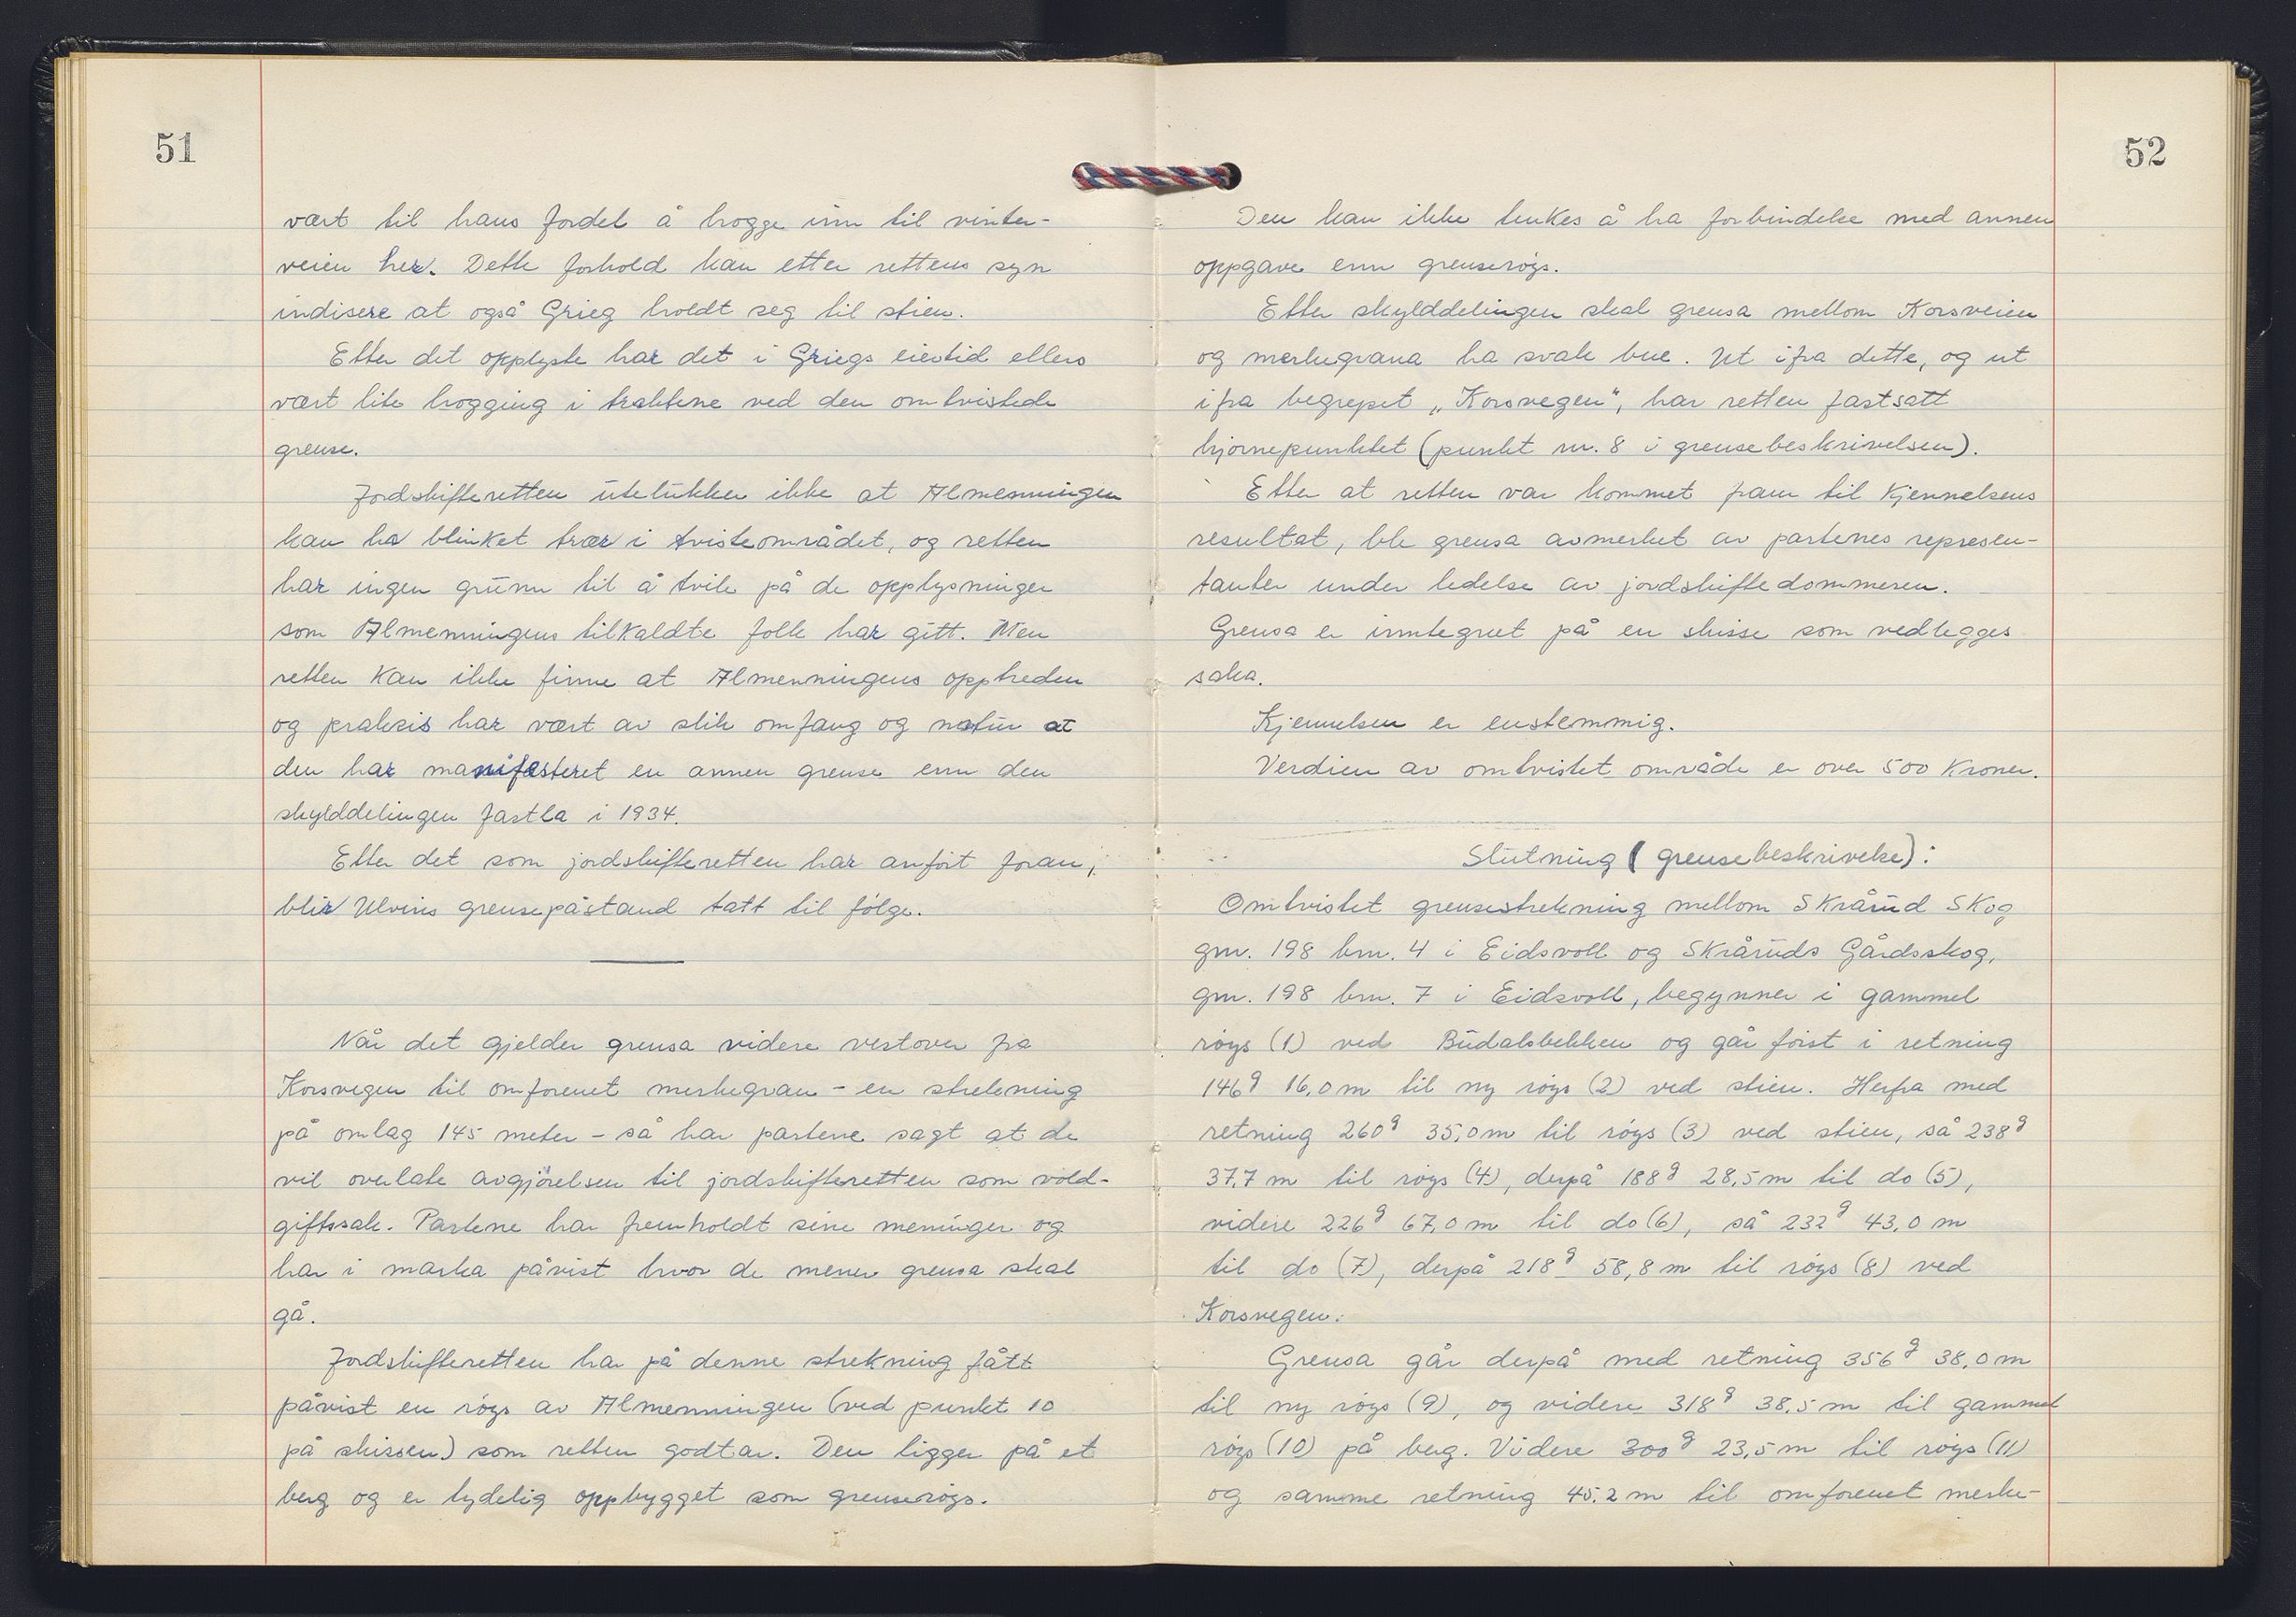 51
vært til hans fordel å hogge inn til vinter-
veien her. Dette forhold kan etter rettens syn
indisere at også Grieg holdt seg til stien.
Etter det opplyste har det i Griegs eiertid ellers
vært lite hogging i traktene ved den omtvistede
grense.
Jordskifteretten utelukker ikke at Almenningen
kan ha blinket trær i tvisteområdet, og retten
har ingen grunn til å tvile på de opplysninger
som Almenningens tilkaldte folk har gitt. Men
retten kan ikke finne at Almenningens opptreden
og praksis har vært av slik omfang og natur at
den har manifestert en annen grense enn den
skylddelingen fastla i 1934.
Etter det som jordskifteretten har anført foran,
blir Ulvins grensepåstand tatt til følge.
Når det gjelder grensa videre vestover fra
Korsvegen til omforenet merkegran - en strekning
på omlag 145 meter - så har partene sagt at de
vil overlate avgjørelsen til jordskifteretten som vold-
giftssak. Partene har fremholdt sine meninger og
har i marka påvist hvor de mener grensa skal
gå.
Jordskifteretten har på denne strekning fått
påvist en røys av Almenningen (ved punkt 10
på skissen) som retten godtar. Den ligger på et
berg og er tydelig oppbygget som grenserøys.
52
Den kan ikke tenkes å ha forbindelse med annen
oppgave enn grenserøys.
Etter skylddelingen skal grensa mellom Korsveien
og merkegrana ha svak bue. Ut ifra dette, og ut
ifra begrepet „Korsvegen", har retten fastsatt
hjørnepunktet (punkt nr. 8 i grensebeskrivelsen).
Etter at retten var kommet fram til kjennelsens
resultat, ble grensa avmerket av partenes represen-
tanter under ledelse av jordskiftedommeren.
Grensa er inntegnet på en skisse som vedlegges
saka.
Kjennelsen er enstemmig.
Verdien av omtvistet område er over 500 kroner.
Slutning (grensebeskrivelse):
Omtvistet grensestrekning mellom Skrårud Skog
gnr. 198 bnr. 4 i Eidsvoll og Skråruds Gårdsskog,
gnr. 198 bnr. 7 i Eidsvoll, begynner i gammel
røys (1) ved Budalsbekken og går først i retning
146g 16,0 m til ny røys (2) ved stien. Herfra med
retning 260g 35,0 m til røys (3) ved stien, så 238g
37,7 m til røys (4), derpå 188g 28,5 m til do (5),
videre 226g 67,0 m til do (6), så 232g 43,0 m
til do (7), derpå 218g 58,8 m til røys (8) ved
Korsvegen.
Grensa går derpå med retning 356g 38,0 m
til ny røys (9), og videre 318g 38,5 m til gammel
røys (10) på berg. Videre 300g 23,5 m til røys (11)
og samme retning 45,2 m til omforenet merke-